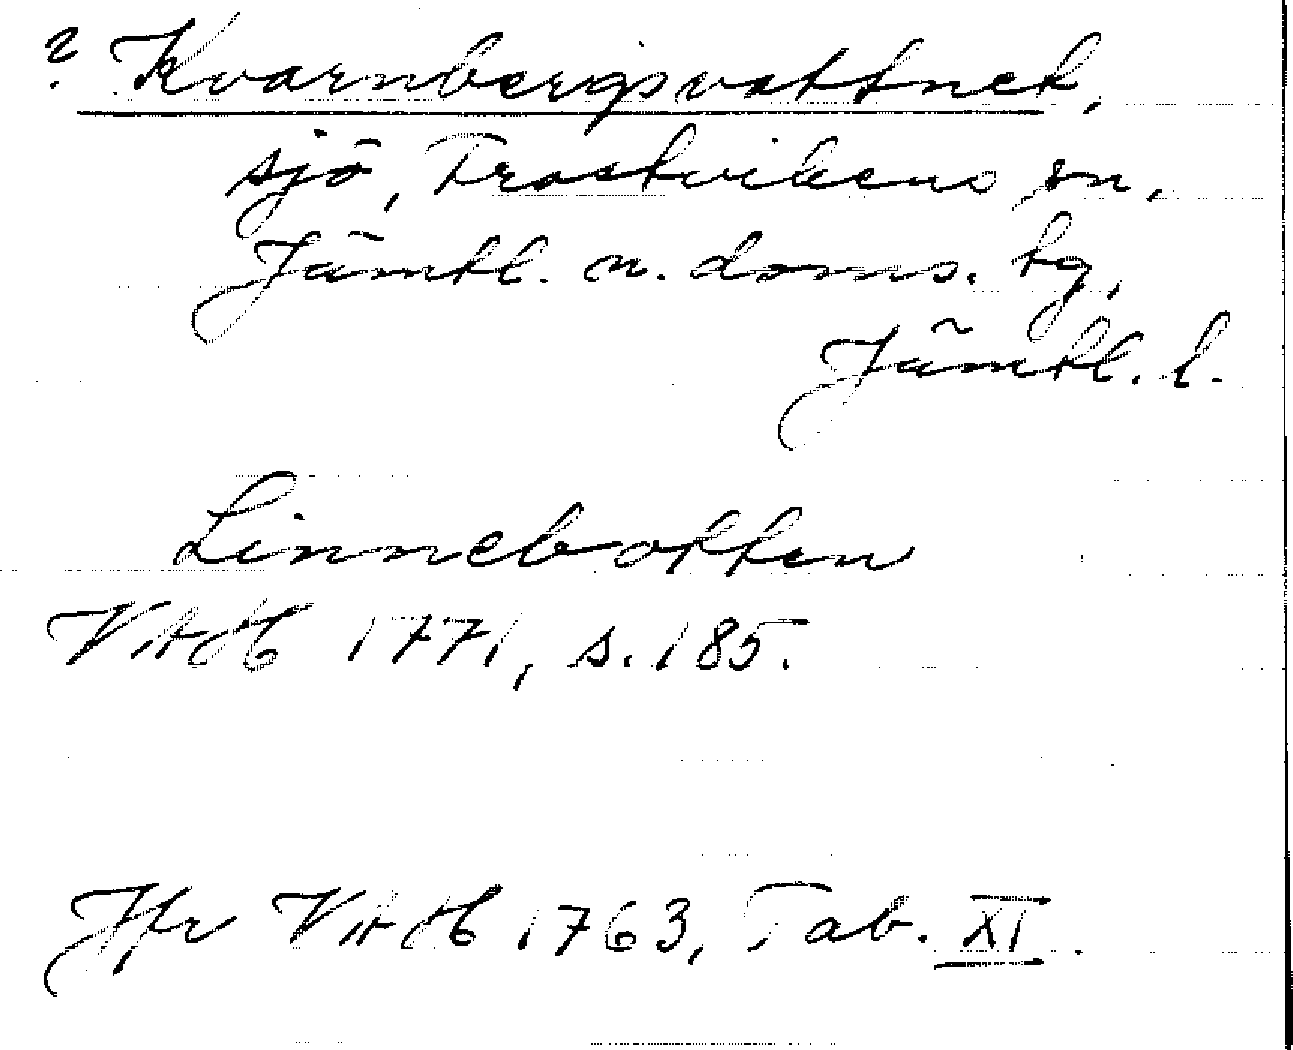 ? Kvarnbergsvattnet,
sjö, Frostvikens sn,
Jämtl. n. doms. tg,
Jämtl. l.
Linnebotten
VittH 1771, s. 185.
Jfr VittH 1763, Tab. XI.